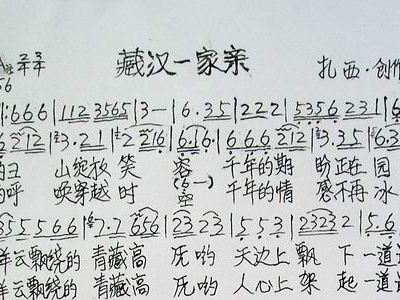 藏汉一家亲
扎西·创作
56
666 | 112 3565 | 3 — | 6·35 | 222 | 5356 231 | 6
6 212 | 3·21 | 2 212 | 6·16· | 666 212 | 3·35 | 6·3
的丑 山绽放 笑 容 千年的期 盼正在 园
的呼 唤穿越 时 (6 —) 空 千年的情 感不再 冰
35566 | 7·7 656 | 23 23 | 553 | 2323 2 | 5·6
祥云飘绕的 青藏高 厌哟 天边上飘 下一道
祥云飘绕的 青藏高 厌哟 人心上架 起一道